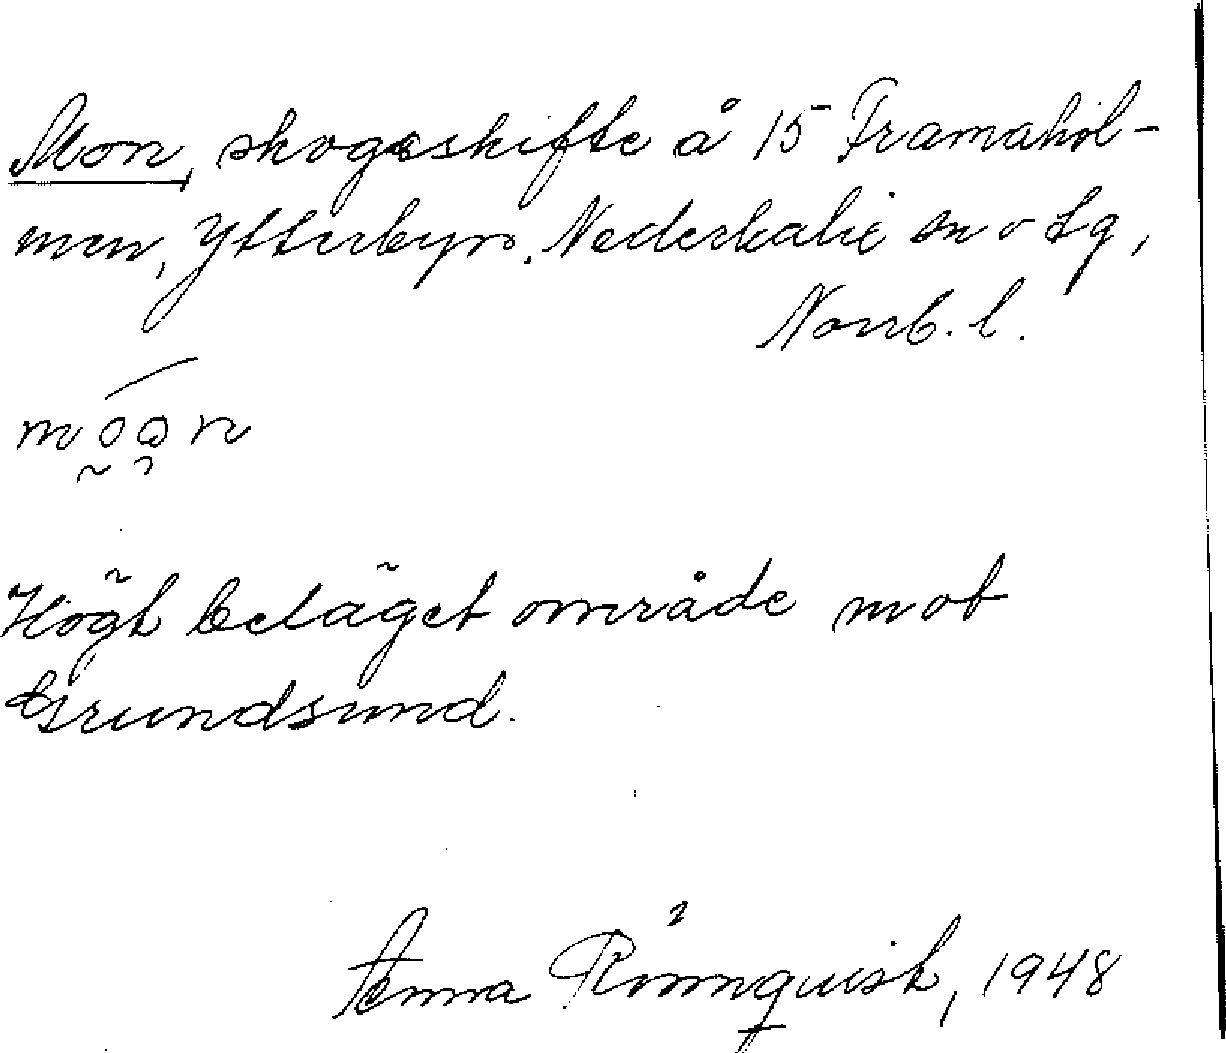 Mon, skogsskifte å 15 Framahol-
men, Ytterbyn. Nederkalix sn o tg,
Norrb. l.
Högt beläget område mot
Grundsund.
Anna Rönnquist, 1948